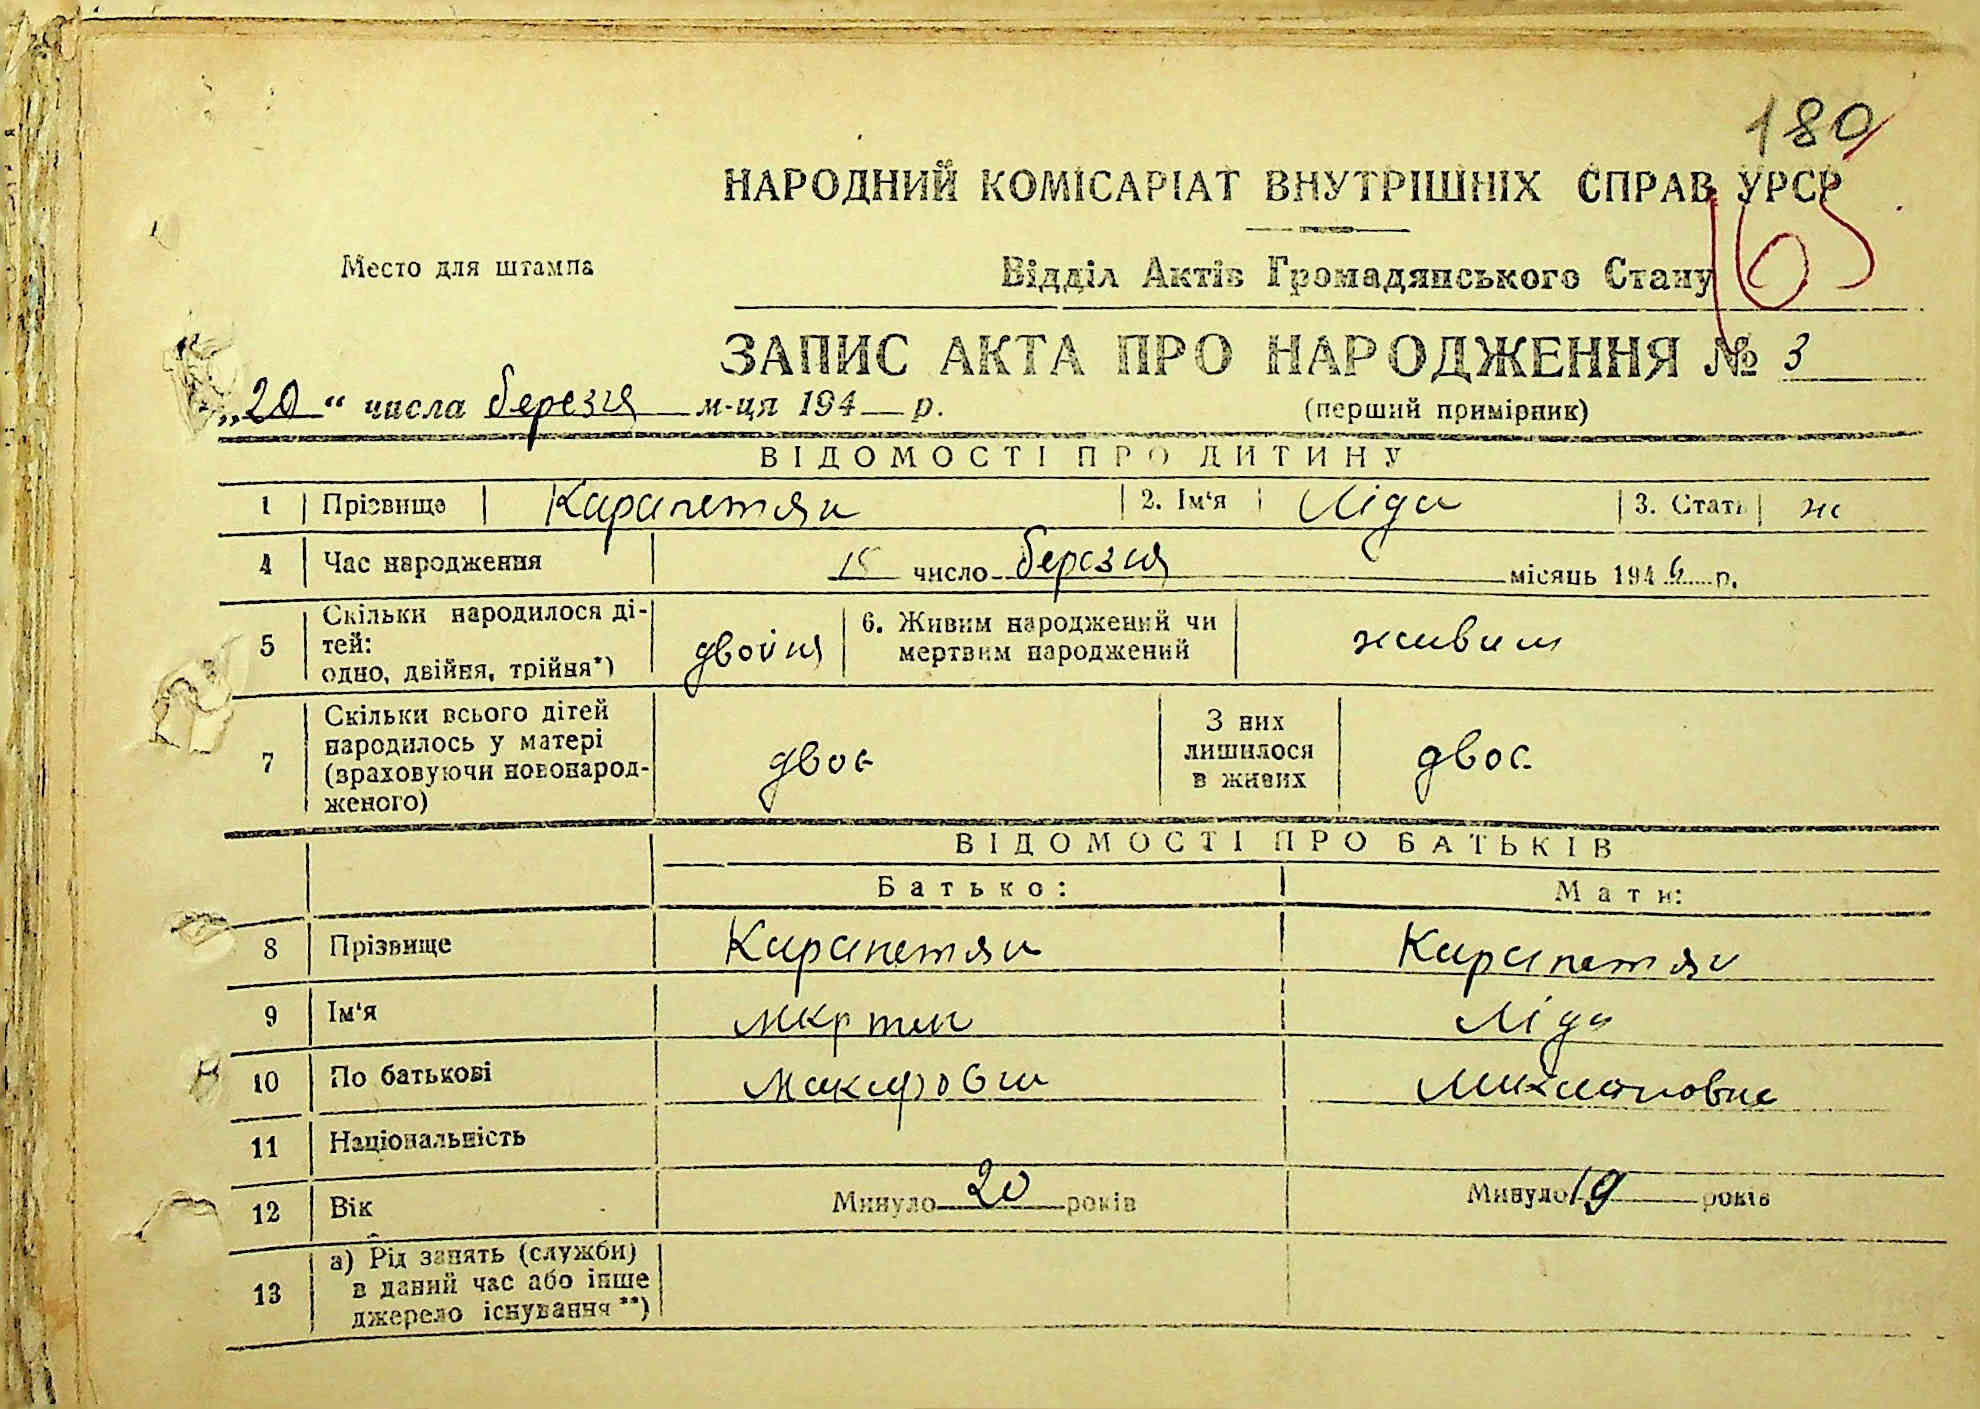 180
165
НАРОДНИЙ КОМІСАРІАТ ВНУТРІШНІХ СПРАВ УРСР
Место для штампа
Відділ Актів Громадянського Стану
ЗАПИС АКТА ПРО НАРОДЖЕННЯ № 3
„20“ числа березня м-ця 194 р.
(перший примірник)
ВІДОМОСТІ ПРО ДИТИНУ
1 Прізвище Карапетян 2. Ім'я Ліда 3. Стать ж
4 Час народження 15 число березня місяць 1946 р.
5 Скільки народилося ді-
тей:
одно, двійня, трійня*)
двойня
6. Живим народжений чи
мертвим народжений
живим
7 Скільки всього дітей
народилось у матері
(враховуючи новонарод-
женого)
двоє
З них
лишилося
в живих
двоє
ВІДОМОСТІ ПРО БАТЬКІВ
Батько: Мати:
8 Прізвище Карапетян Карапетян
9 Ім'я Мкртич Ліда
10 По батькові Макарович Михайловна
11 Національність
12 Вік Минуло 20 років Минуло 19 років
13 а) Рід занять (служби)
в даний час або інше
джерело існування**)